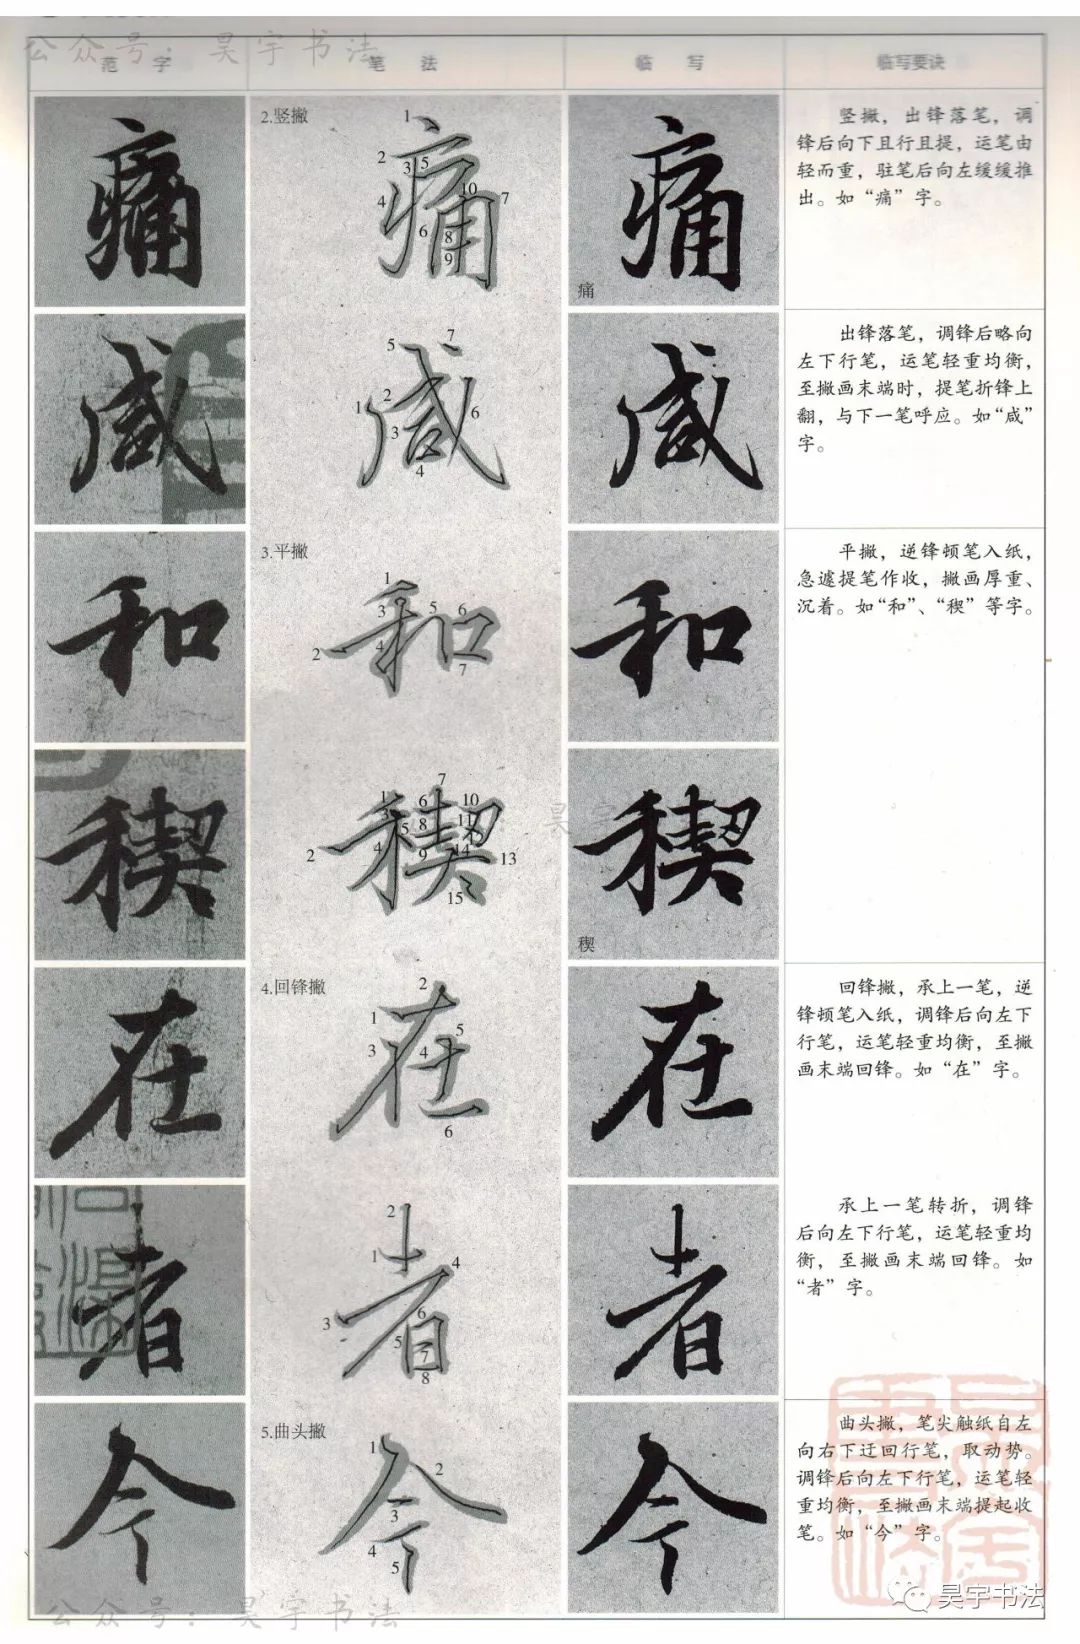 公众号：昊宇书法
范 字 笔 法 临 写 临写要诀
痛
2.竖撇
1
2
3 5
4
10
7
6
8
9
痛
痛
竖撇，出锋落笔，调
锋后向下且行且提，运笔由
轻而重，驻笔后向左缓缓推
出。如“痛”字。
咸
5
7
2
1
6
3
4
咸
出锋落笔，调锋后略向
左下行笔，运笔轻重均衡，
至撇画末端时，提笔折锋上
翻，与下一笔呼应。如“咸”
字。
和
3.平撇
1
3
5 6
4
2
7
和
平撇，逆锋顿笔入纸，
急遽提笔作收，撇画厚重、
沉着。如“和”、“稧”等字。
稧
7
1
6
10
3
8
11
5
4
9
14
2
13
15
昊宇
稧
稧
在
4.回锋撇
2
1
5
3
4
6
在
回锋撇，承上一笔，逆
锋顿笔入纸，调锋后向左下
行笔，运笔轻重均衡，至撇
画末端回锋。如“在”字。
者
2
1
4
3
6
5
7
8
者
承上一笔转折，调锋
后向左下行笔，运笔轻重均
衡，至撇画末端回锋。如
“者”字。
今
5.曲头撇
1
2
3
4
5
今
曲头撇，笔尖触纸自左
向右下迂回行笔，取动势。
调锋后向左下行笔，运笔轻
重均衡，至撇画末端提起收
笔。如“今”字。
公众号：昊宇书法
昊宇书法